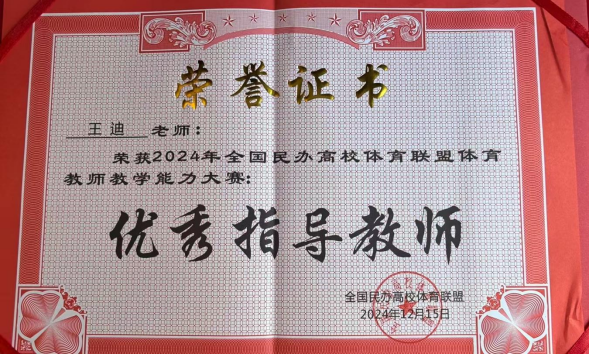 荣誉证书
王迪 老师：
荣获2024年全国民办高校体育联盟体育
教师教学能力大赛：
优秀指导教师
全国民办高校体育联盟
2024年12月15日